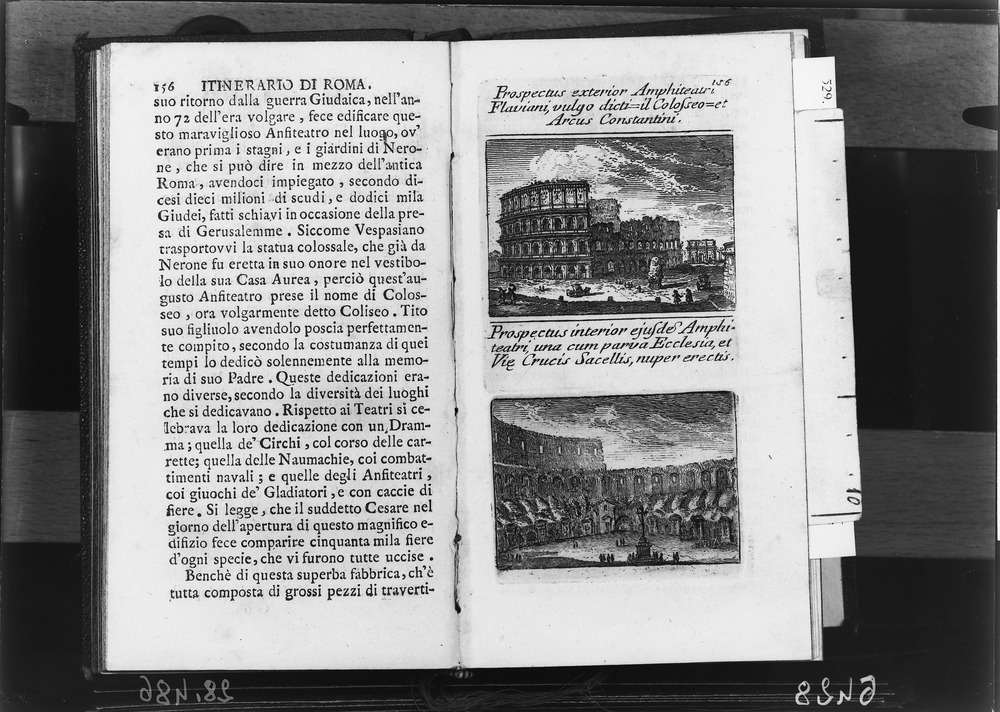 156 ITINERARIO DI ROMA.
suo ritorno dalla guerra Giudaica, nell'an-
no 72 dell'era volgare, fece edificare que-
sto maraviglioso Anfiteatro nel luogo, ov'
erano prima i stagni, e i giardini di Nero-
ne, che si può dire in mezzo dell'antica
Roma, avendoci impiegato, secondo di-
cesi dieci milioni di scudi, e dodici mila
Giudei, fatti schiavi in occasione della pre-
sa di Gerusalemme. Siccome Vespasiano
trasportovvi la statua colossale, che già da
Nerone fu eretta in suo onore nel vestibo-
lo della sua Casa Aurea, perciò quest'au-
gusto Anfiteatro prese il nome di Colos-
seo, ora volgarmente detto Coliseo. Tito
suo figliuolo avendolo poscia perfettamen-
te compito, secondo la costumanza di quei
tempi lo dedicò solennemente alla memo-
ria di suo Padre. Queste dedicazioni era-
no diverse, secondo la diversità dei luoghi
che si dedicavano. Rispetto ai Teatri si ce-
lebrava la loro dedicazione con un Dram-
ma; quella de' Circhi, col corso delle car-
rette; quella delle Naumachie, coi combat-
timenti navali; e quelle degli Anfiteatri,
coi giuochi de' Gladiatori, e con caccie di
fiere. Si legge, che il suddetto Cesare nel
giorno dell'apertura di questo magnifico e-
difizio fece comparire cinquanta mila fiere
d'ogni specie, che vi furono tutte uccise.
Benchè di questa superba fabbrica, ch'è
tutta composta di grossi pezzi di traverti-
156
Prospectus exterior Amphiteatri
Flaviani, vulgo dicti=il Colosseo=et
Arcus Constantini.
Prospectus interior ejusdē Amphi-
teatri, una cum parva Ecclesia, et
Vię Crucis Sacellis, nuper erectis.
529.
10
28,486
6428